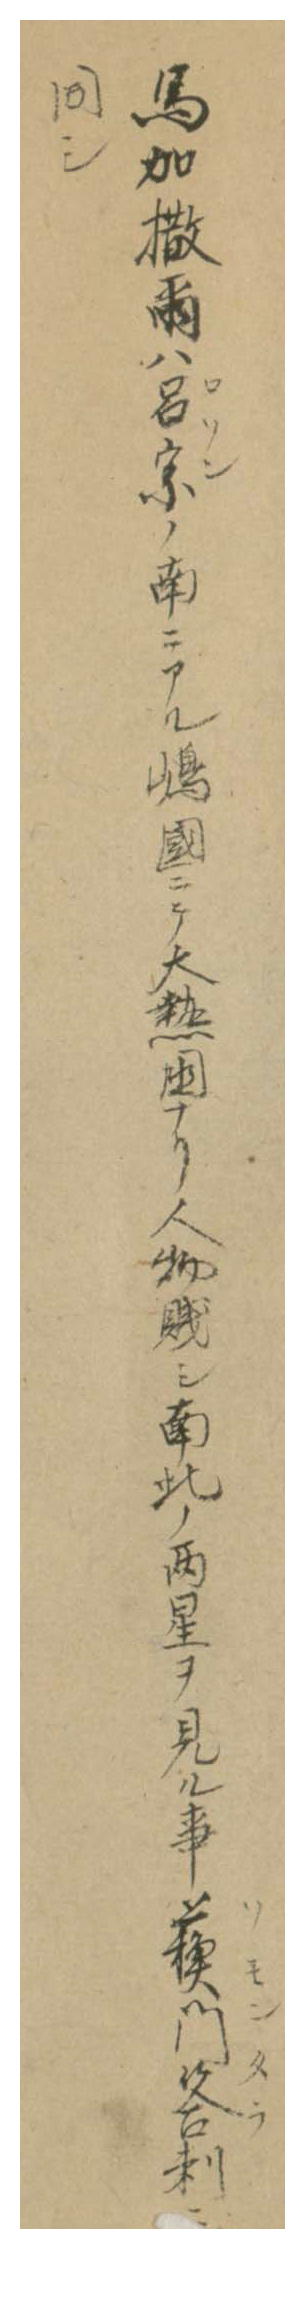 馬加撒爾ハ呂宗ノ南ニアル嶋國ニテ大熱国ナリ人物賎シ南北ノ両星ヲ見ル事蘓門答剌ニ
ロソン
ソモンタラ
同シ